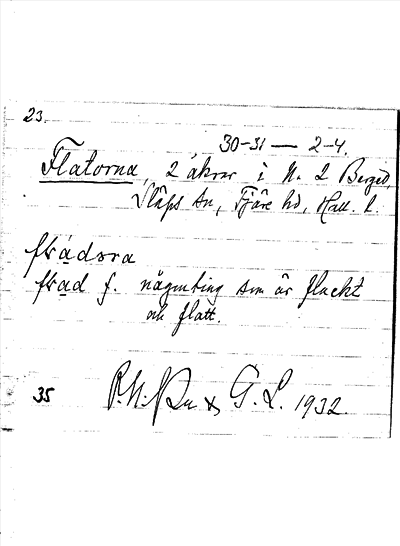 23.
30-31 — 2-4.
Flatorna, 2 åkrar i N. 2 Berged,
Släps sn, Fjäre hd, Hall. l.
flådora
flad f. någonting som är flackt
och flatt.
35 G. L. 1932.